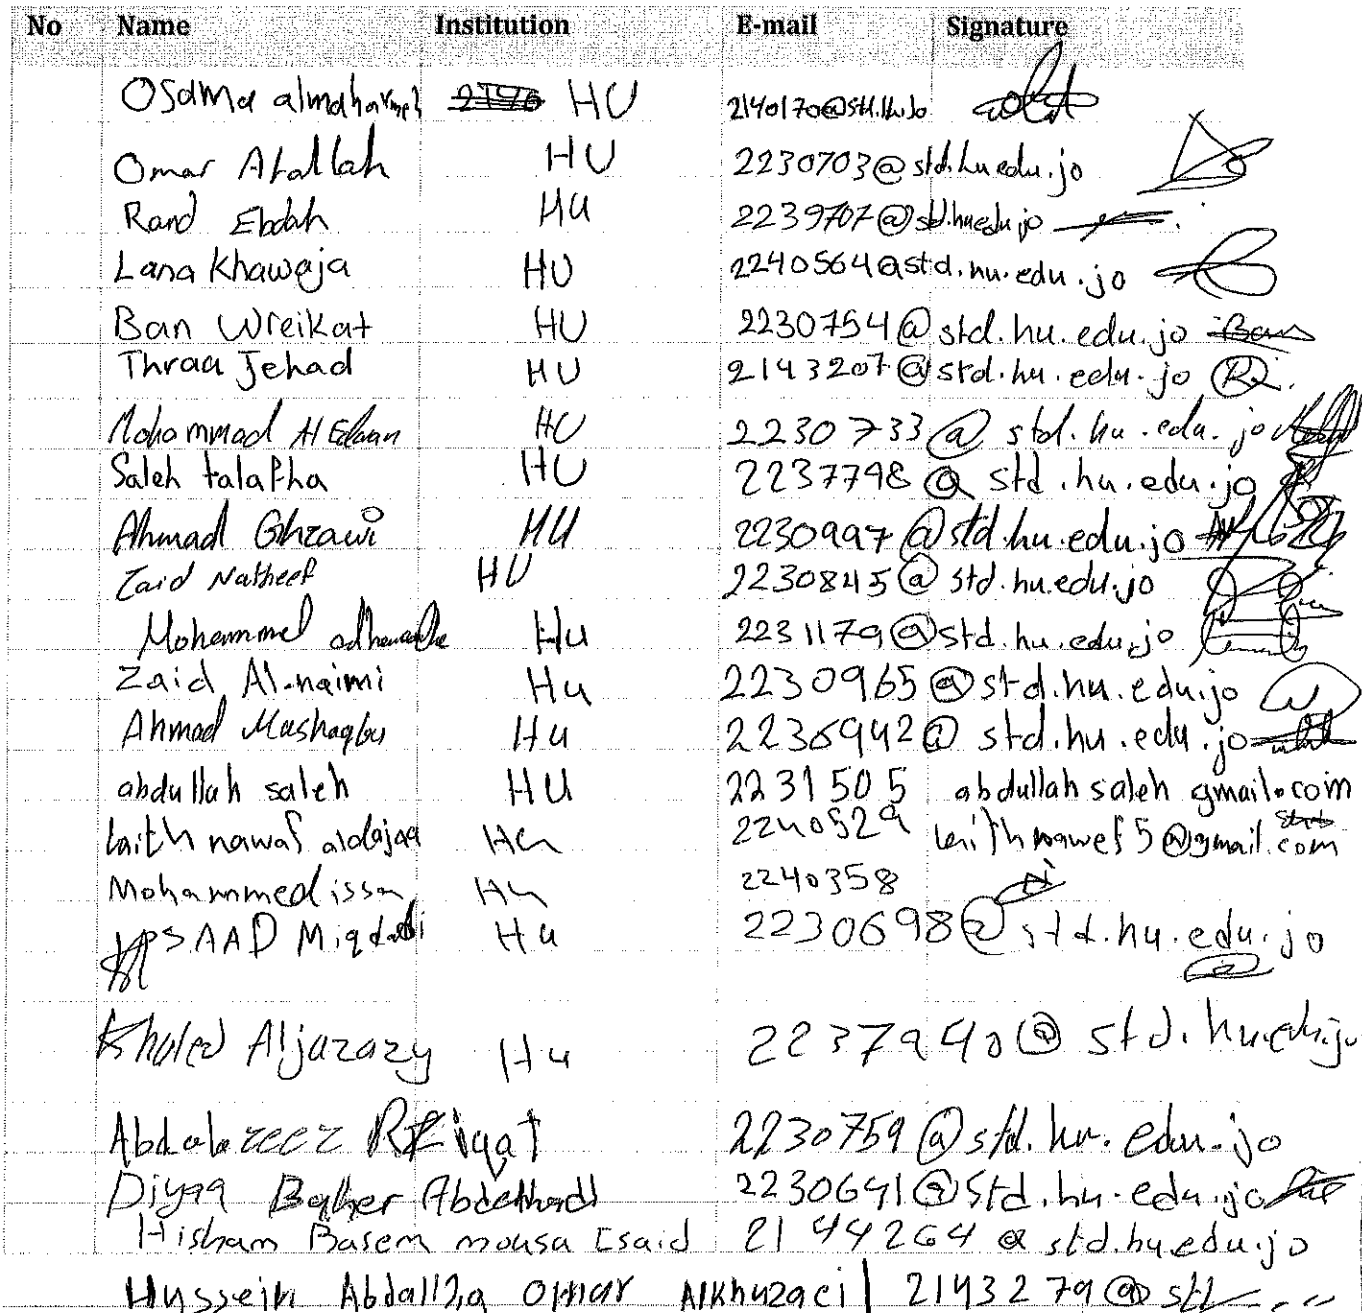 No Name Institution E-mail Signature
Osama almaharmeh HU 2140170@std.hu.jo
Omar Atallah HU 2230703@std.hu.edu.jo
Rand Ebdah HU 2239707@std.hu.edu.jo
Lana Khawaja HU 2240564@std.hu.edu.jo
Ban Wreikat HU 2230754@std.hu.edu.jo Ban
Thraa Jehad HU 2143207@std.hu.edu.jo
Mohammad HU 2230733@std.hu.edu.jo
Saleh talafha HU 2237798@std.hu.edu.jo
Ahmad Ghzawi HU 2230997@std.hu.edu.jo
Zaid Natheef HU 2230845@std.hu.edu.jo
Mohammed Hu 2231179@std.hu.edu.jo
Zaid Al-naimi Hu 2230965@std.hu.edu.jo
Ahmad Mashaqbu Hu @std.hu.edu.jo
abdullah saleh HU 2231505 abdullah saleh gmail.com
laith nawaf Hu 2240529 laithnawef5@gmail.com
Mohammed issa Hu 2240358
Hu 2230698@std.hu.edu.jo
Khaled Aljazazy Hu 2237940@std.hu.edu.jo
2230759@std.hu.edu.jo
Diyaa Baher 2230641@std.hu.edu.jo
Hisham Basem mousa Esaid 2144264@std.hu.edu.jo
Hussein Omar 2143279@